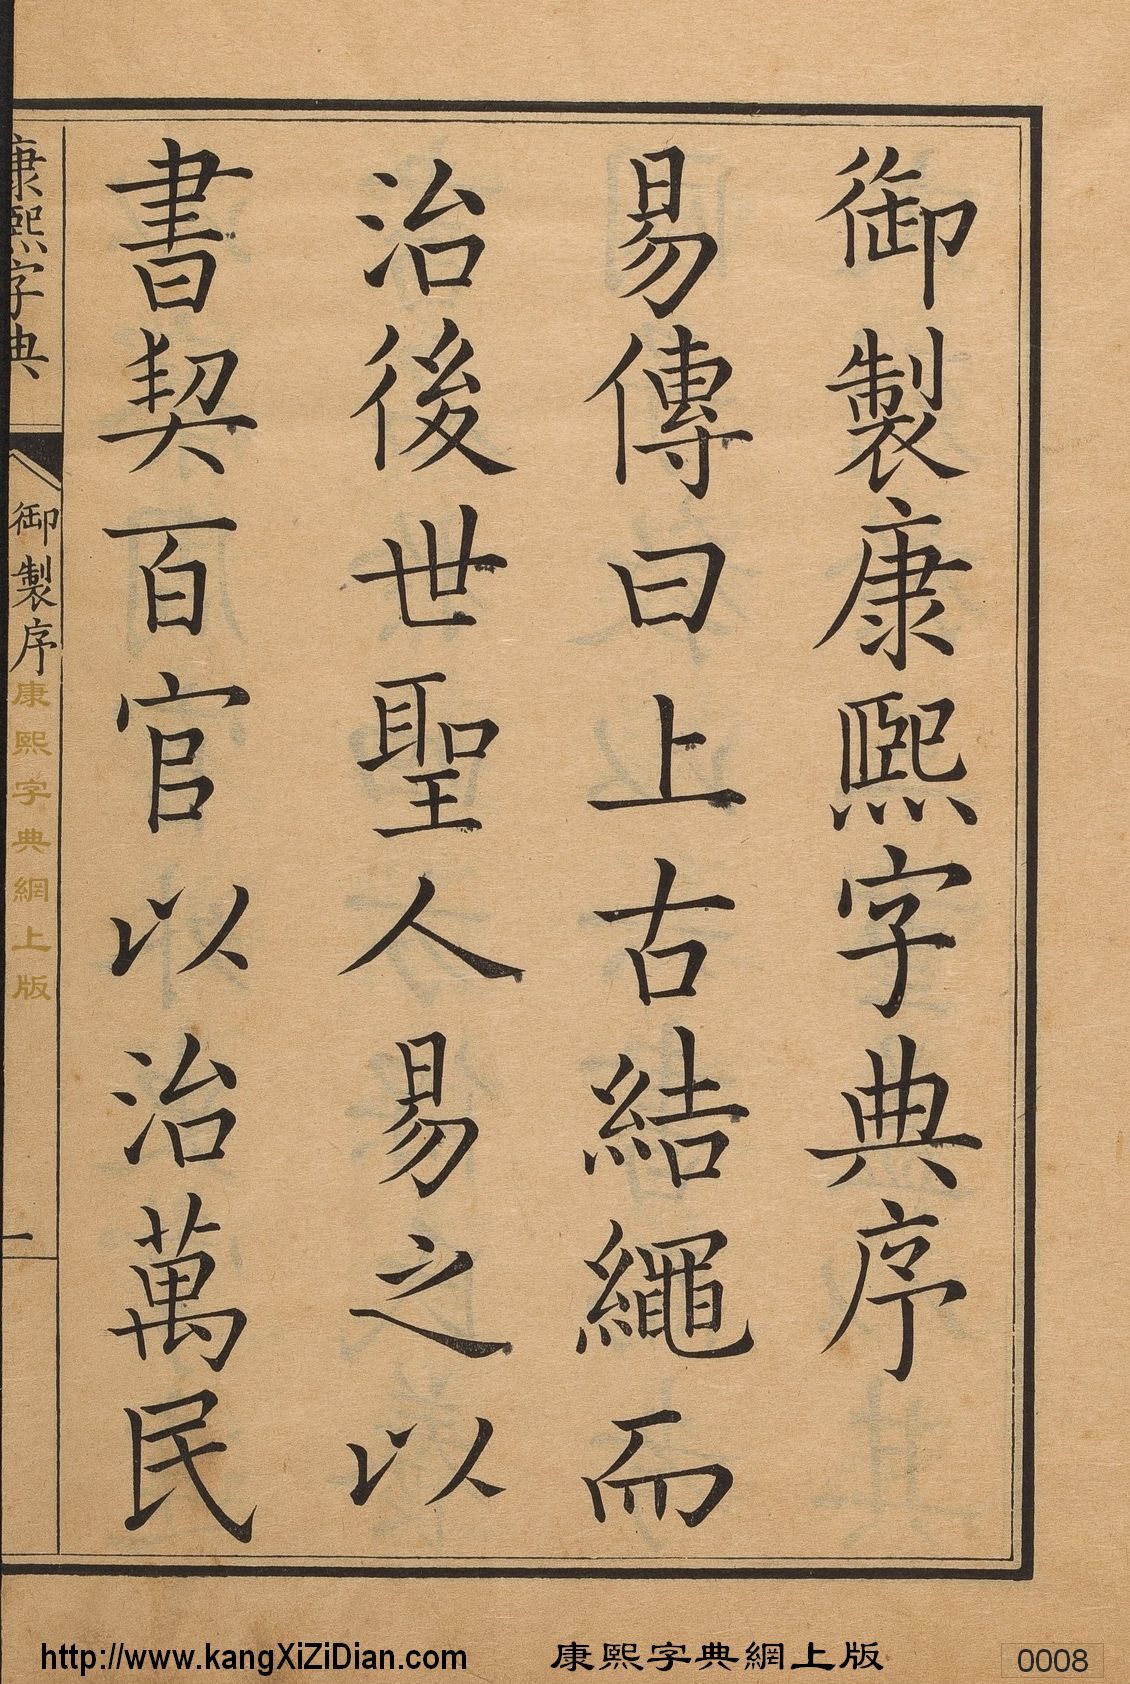 御製康熙字典序
易傳曰上古結繩而
治後世聖人易之以
書契百官以治萬民
康熙字典
御製序
一
康熙字典網上版
http://www.kangXiZiDian.com
康熙字典網上版
0008